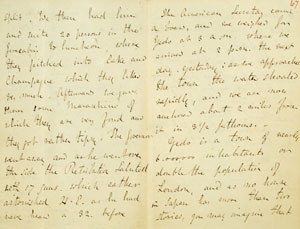 Ship. We then had lunch
and note 20 persons in the
forecabin to luncheon where
they pitched into Cake and
Champagne which they likes
so much. Afterward we gave
them some Maraschino of
which they are very fond and
they got rather tipsy. The governor
went away and as he went over
the side the Retribution saluted
with 17 guns, which rather
astonished H.E. as he had
never heard a 32 before
67
The American Secretary came
on board, and we weighed for
Yedo at 3 a.m. where we
arrived at 2 p.m. the next
day. Yesterday, as we approached
the town the water shoaled
rapidly, and we are now
anchored about 2 miles from
it in 3 1/2 fathoms.
Yedo is a town of nearly
inhabitants or
double the population of
London, and as no house
in Japan has more than two
stories, you may imagine that